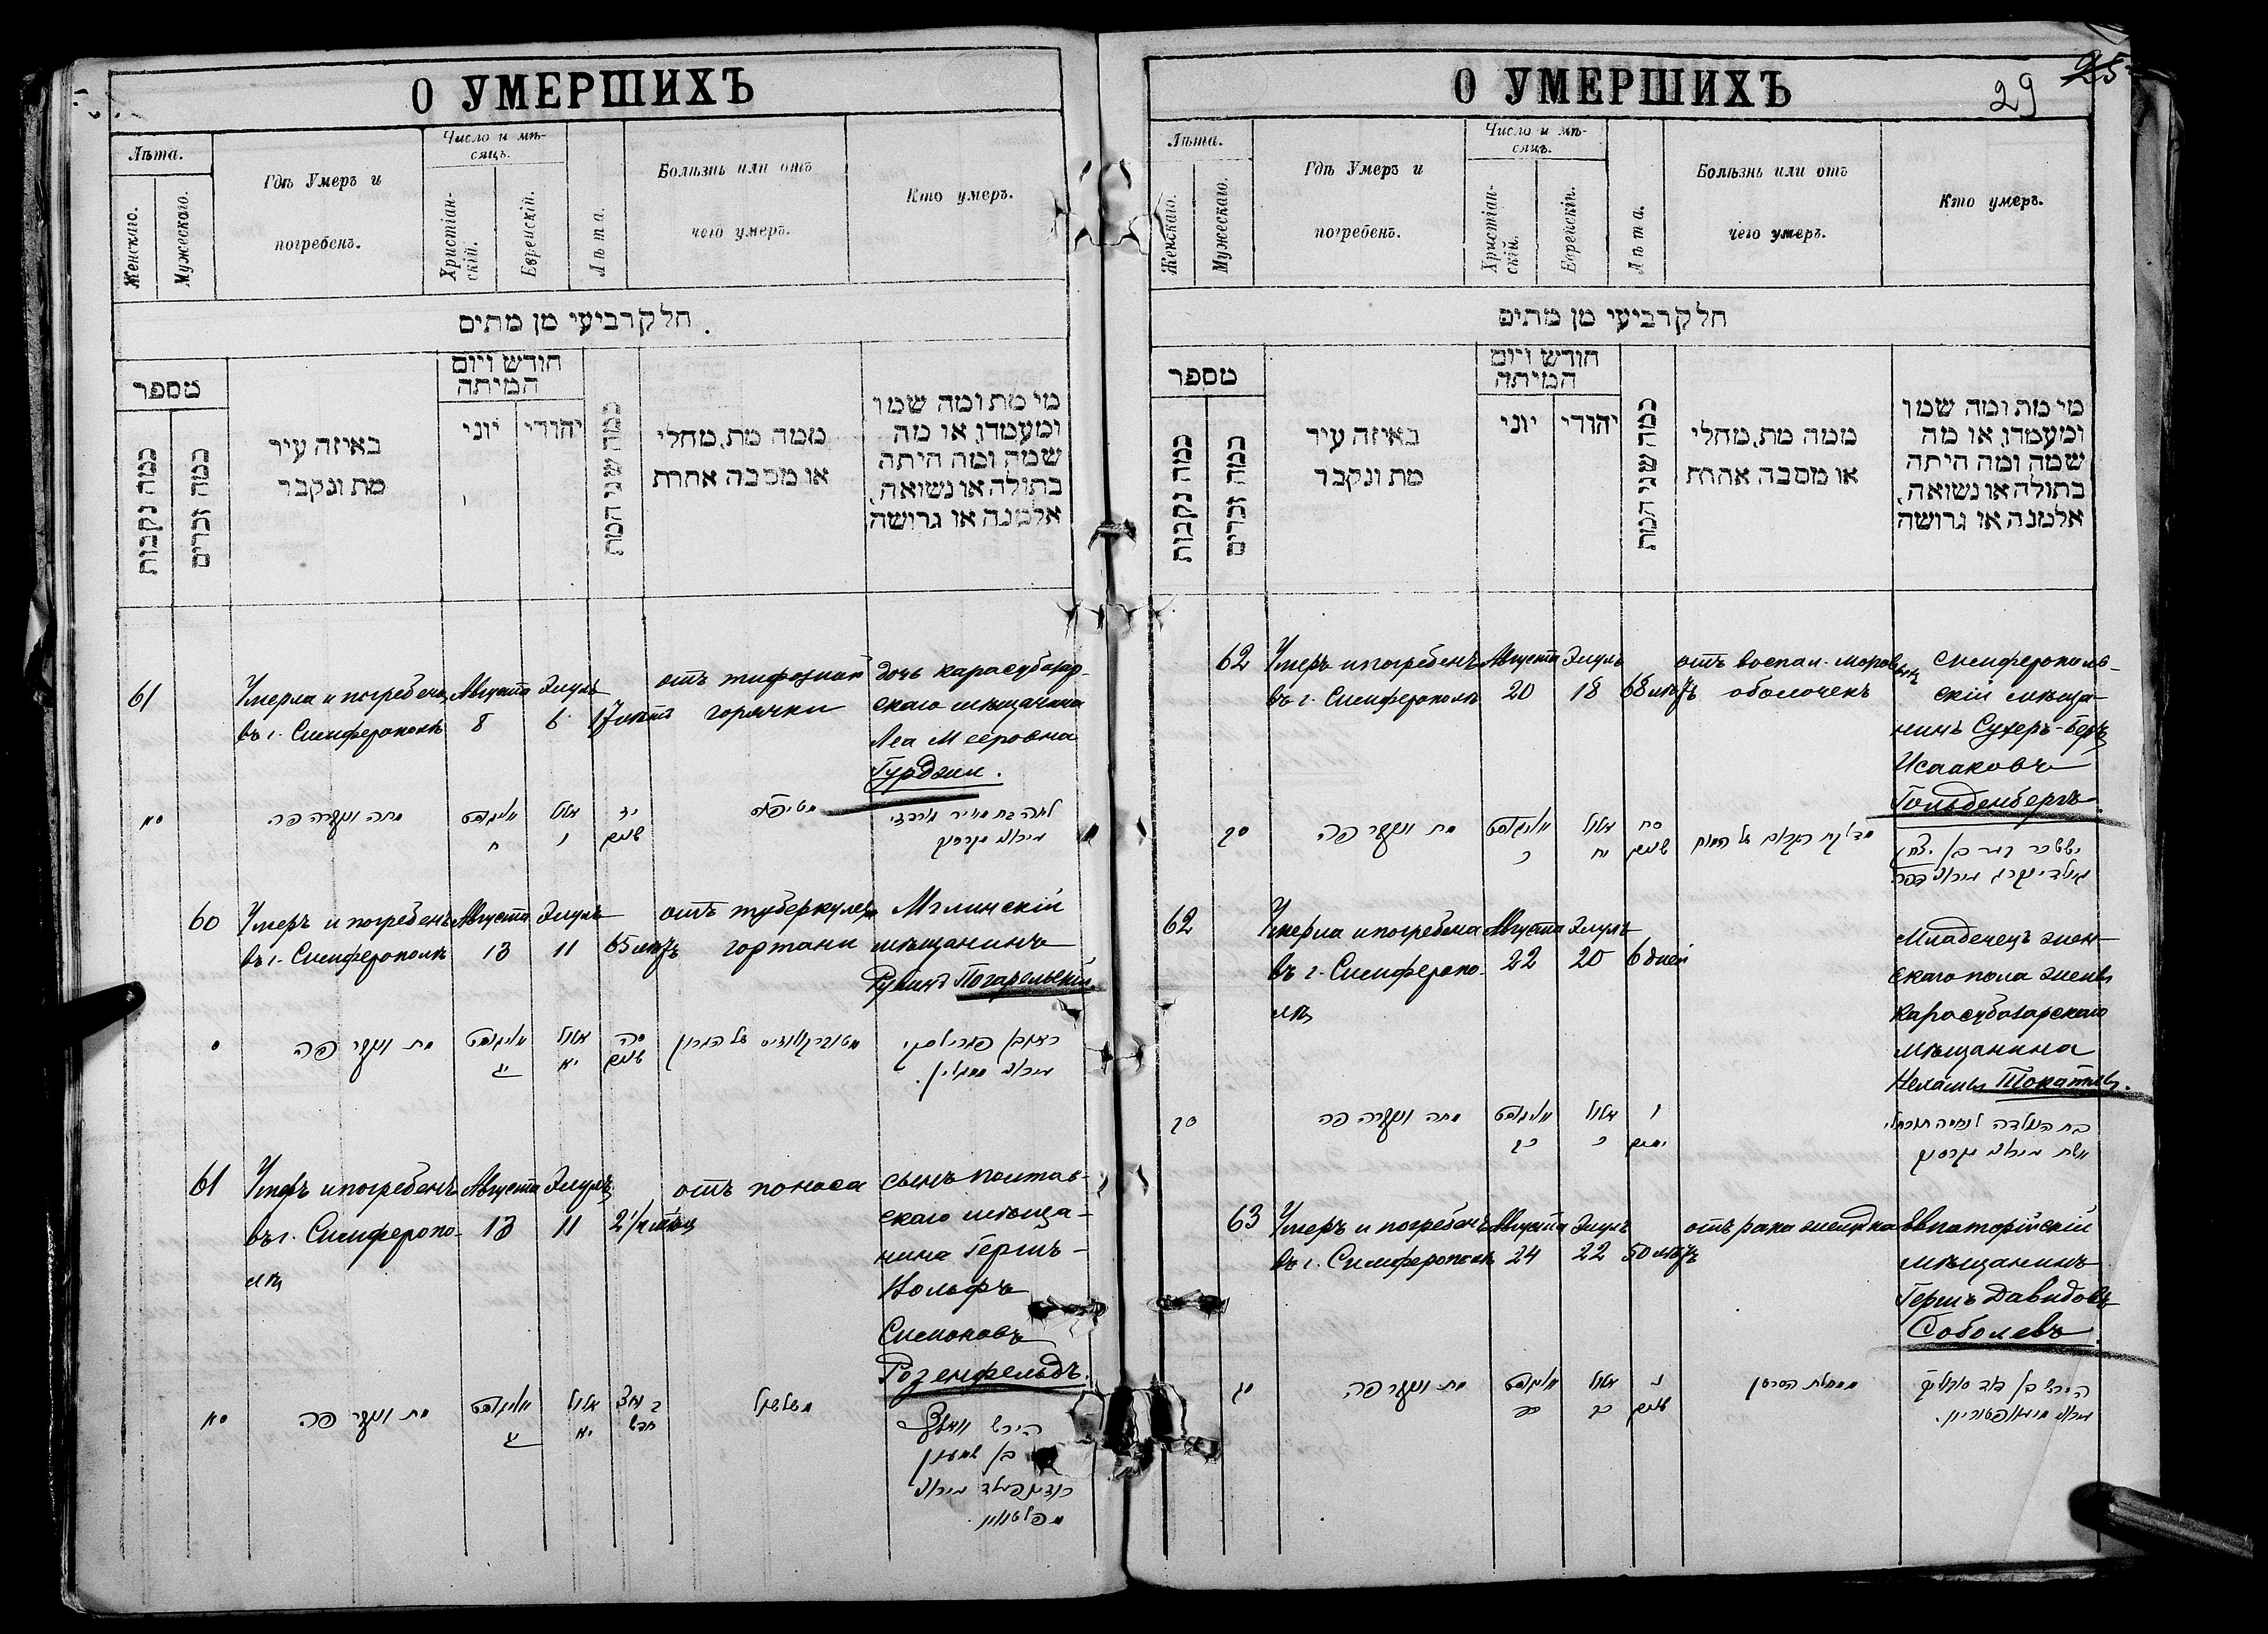 О УМЕРШИХЪ
Лѣта.
Женскаго.
Мужескаго.
Гдѣ Умеръ и
погребенъ.
Число и мѣ-
сяцъ.
Христіан-
скій.
Еврейскій.
Лѣта.
Болѣзнь или отъ
чего умеръ.
Кто умеръ.
חלק רביעי מן מתים
מספר
כמה נקבות
כמה זכרים
באיזה עיר
מת ונקבר
חודש ויום
המיתה
יוני
יהודי
כמה שני המת
ממה מת, מחלי
או מסבה אחרת
מי מת ומה שמו
ומעמדו, או מה
שמה ומה היתה
בתולה או נשואה,
אלמנה או גרושה
61
Умерла и погребена
въ г. Симферополѣ
Августа
8
Элулъ
6
17 лѣтъ
отъ тифозной
горячки
дочь карасубазар-
скаго мѣщанина
Леа Мееровна
Гурджи.
סא
מתה ונקברה פה
אויגוסט
ח
אלול
ו
יז
שנים
לאה בת מאיר
60
Умеръ и погребенъ
въ г. Симферополѣ
Августа
13
Элулъ
11
65 лѣтъ
отъ туберкулеза
гортани
Мглинскій
мѣщанинъ
Рувинъ Погарельскій.
ס
מת ונקבר פה
אויגוסט
יג
אלול
יא
סה
שנים
ראובן
61
Умеръ и погребенъ
въ г. Симферопо-
лѣ
Августа
13
Элулъ
11
2 1/2 мѣсяц
отъ поноса
сынъ полтав-
скаго мѣща-
нина Гершъ-
Вольфъ
Симоновъ
Розенфельдъ.
סא
מת ונקבר פה
אויגוסט
יג
אלול
יא
ב וחצי
חדש
משלשול
הירש וואלף
בן שמעון
ראזענפעלד מירגא
מפלטאווא.
О УМЕРШИХЪ
29
25
Лѣта.
Женскаго.
Мужескаго.
Гдѣ Умеръ и
погребенъ.
Число и мѣ-
сяцъ.
Христіан-
скій.
Еврейскій.
Лѣта.
Болѣзнь или отъ
чего умеръ.
Кто умеръ.
חלק רביעי מן מתים
מספר
כמה נקבות
כמה זכרים
באיזה עיר
מת ונקבר
חודש ויום
המיתה
יוני
יהודי
כמה שני המת
ממה מת, מחלי
או מסבה אחרת
מי מת ומה שמו
ומעמדו, או מה
שמה ומה היתה
בתולה או נשואה,
אלמנה או גרושה
62
Умеръ и погребенъ
въ г. Симферополѣ
Августа
20
Элулъ
18
68 лѣтъ
отъ воспал. мозгов
оболочекъ
Симферополь-
скій мѣща-
нинъ Сухеръ-Беръ
Исааковъ
Гольденбергъ.
סב
מת ונקבר פה
אויגוסט
כ
אלול
יח
סח
שנים
יששכר בער בן יצחק
62
Умерла и погребена
въ г. Симферопо-
лѣ
Августа
22
Элулъ
20
6 дней
Младенецъ жен-
скаго пола жены
карасубазарскаго
мѣщанина
Нехамы Токатлы.
סב
מתה ונקברה פה
אויגוסט
כב
אלול
כ
ו
ימים
63
Умеръ и погребенъ
въ г. Симферополѣ
Августа
24
Элулъ
22
50 лѣтъ
отъ рака желудка
Евпаторійскій
мѣщанинъ
Гершъ Давидовъ
Соболевъ.
סג
מת ונקבר פה
אויגוסט
כד
אלול
כב
נ
שנים
ממחלת הסרטן
הירש בן דוד